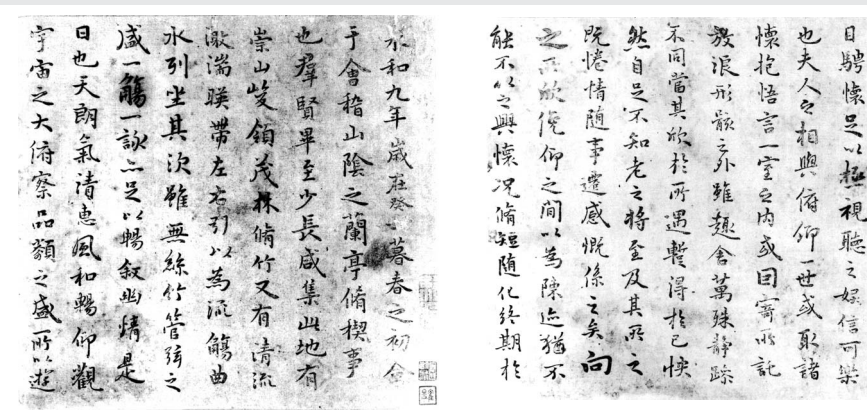 永和九年歲在癸丑暮春之初會
于會稽山陰之蘭亭脩稧事
也羣賢畢至少長咸集此地有
崇山峻領茂林脩竹又有清流
激湍暎帶左右引以為流觴曲
水列坐其次雖無絲竹管弦之
盛一觴一詠亦足以暢敘幽情是
日也天朗氣清惠風和暢仰觀
宇宙之大俯察品類之盛所以遊
目騁懷足以極視聽之娛信可樂
也夫人之相與俯仰一世或取諸
懷抱悟言一室之內或因寄所託
放浪形骸之外雖趣舍萬殊靜躁
不同當其欣於所遇暫得於己怏
然自足不知老之將至及其所之
既惓情隨事遷感慨係之矣向
之所欣俛仰之間以為陳迹猶不
能不以之興懷況脩短隨化終期於